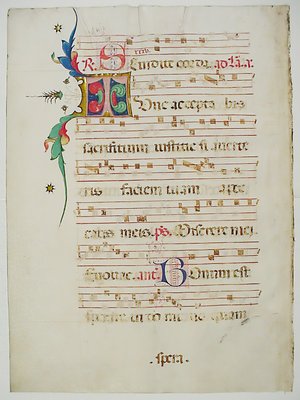 corda.
TUnc accepta bis
sacrificium iusticie si auerte
ris faciem tuam a pec
catis meis. ps. Miserere mei
Euouae. ant. BOnum est
sperare in do mi no quam
·spera·